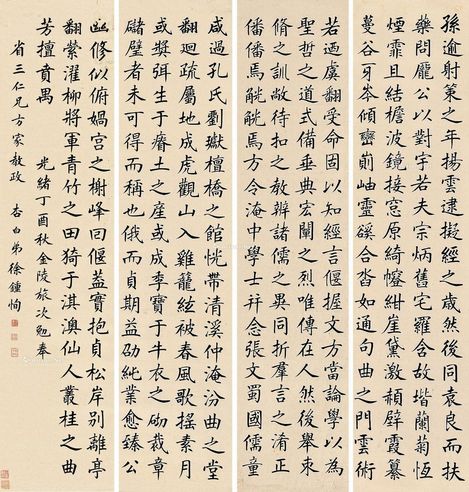 孫逾射策之楊雲後同袁良而扶
藥問龐公以對宇若夫宗炳舊宅羅含故堦蘭菊恆
煙霏且結檐波鏡接窓原綺幰紺崖黛激頳壁霞纂
蔓谷牙岑傾巒崱岫靈谿合沓如通句曲之門雲術
若迺虞翻受命固以知經言偃握文方當論學以為
聖哲之道式備垂典宏闡之烈唯傳在人然後舉束
脩之訓敞待扣之教辯諸儒之同異折羣言之淆正
僠僠焉觥觥焉方今淹中學士幷念張文蜀國儒童
咸過孔氏劉嶽檀橋之館恍帶清溪仲淹汾曲之堂
翻迴疏屬地成虎觀山入雞籠絃被春風歌搖素月
或獎弭生于瘠土之座或成李寶于牛衣之劬裁章
讎璧者未可得而稱也俄而貞期益劭純業愈臻公
幽修似俯媧宮之榭峰回偃蓋實抱貞松岸別離亭
翻縈濯柳將軍青竹之田猗于淇澳仙人叢桂之曲
芳擅賁禺 光緒丁酉秋金陵旅次勉奉
省三仁兄方家教政 杏白弟徐鍾恂